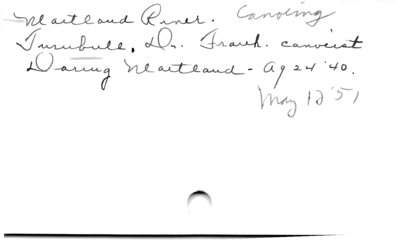 Maitland River. Canoeing
Turnbull, Dr. Frank. canoeist
Daring Maitland - Ag 24 '40.
May 12 '51